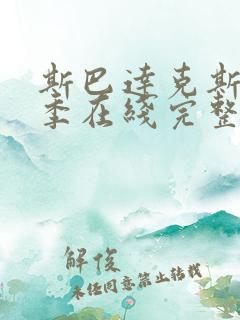 斯巴达克斯
季在线完整
解俊
未经同意禁止转载